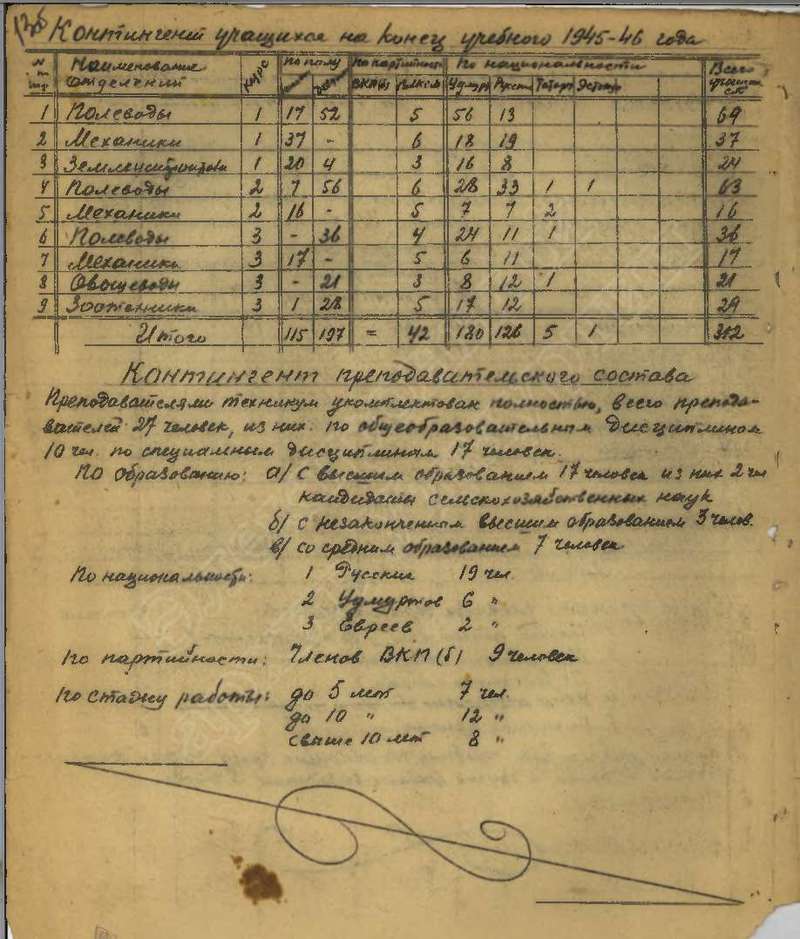 136
Контингент учащихся на конец учебного 1945-46 года
N п/п Наименование отделений Курс По полу По партийности По национальности Всего
ВКП(б) ВЛКСМ Удмур Русск Татар Эстон
1 Полеводы 1 17 52 5 56 13 69
2 Механики 1 37 - 6 18 19 37
3 1 20 4 3 16 8 24
4 Полеводы 2 7 56 6 28 33 1 1 63
5 Механики 2 16 - 5 7 7 2 16
6 Полеводы 3 - 36 4 24 11 1 36
7 Механики 3 17 - 5 6 11 17
8 Овощеводы 3 - 21 3 8 12 1 21
9 Зоотехники 3 1 28 5 17 12 29
Итого 115 197 = 42 180 126 5 1 312
Контингент преподавательского состава
Преподавателями техникум укомплектован полностью, всего препода-
вателей 27 человек, из них: по общеобразовательным дисциплинам
10 чел. по специальным дисциплинам 17 человек.
По образованию: а/ с высшим образованием 17 человек из них 2 чел
кандидаты сельскохозяйственных наук
б/ с незаконченным высшим образованием 3 челов.
в/ со средним образованием 7 человек
По национальности: 1 Русских 19 чел.
2 Удмуртов 6 "
3 Евреев 2 "
По партийности: Членов ВКП(б) 9 человек
По стажу работы: до 5 лет 7 чел.
до 10 " 12 "
свыше 10 лет 8 "